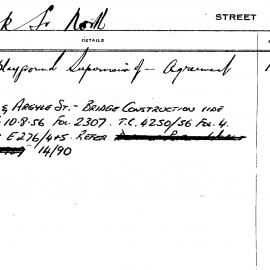 STREET
k St. North
DETAILS
Playground Supervision of - Agreement
& ARGYLE ST. - BRIDGE CONSTRUCTION
10.8.56 FOL. 2307. T.C. 4250/56 FOL. 4.
E276/445. REFER
14/90